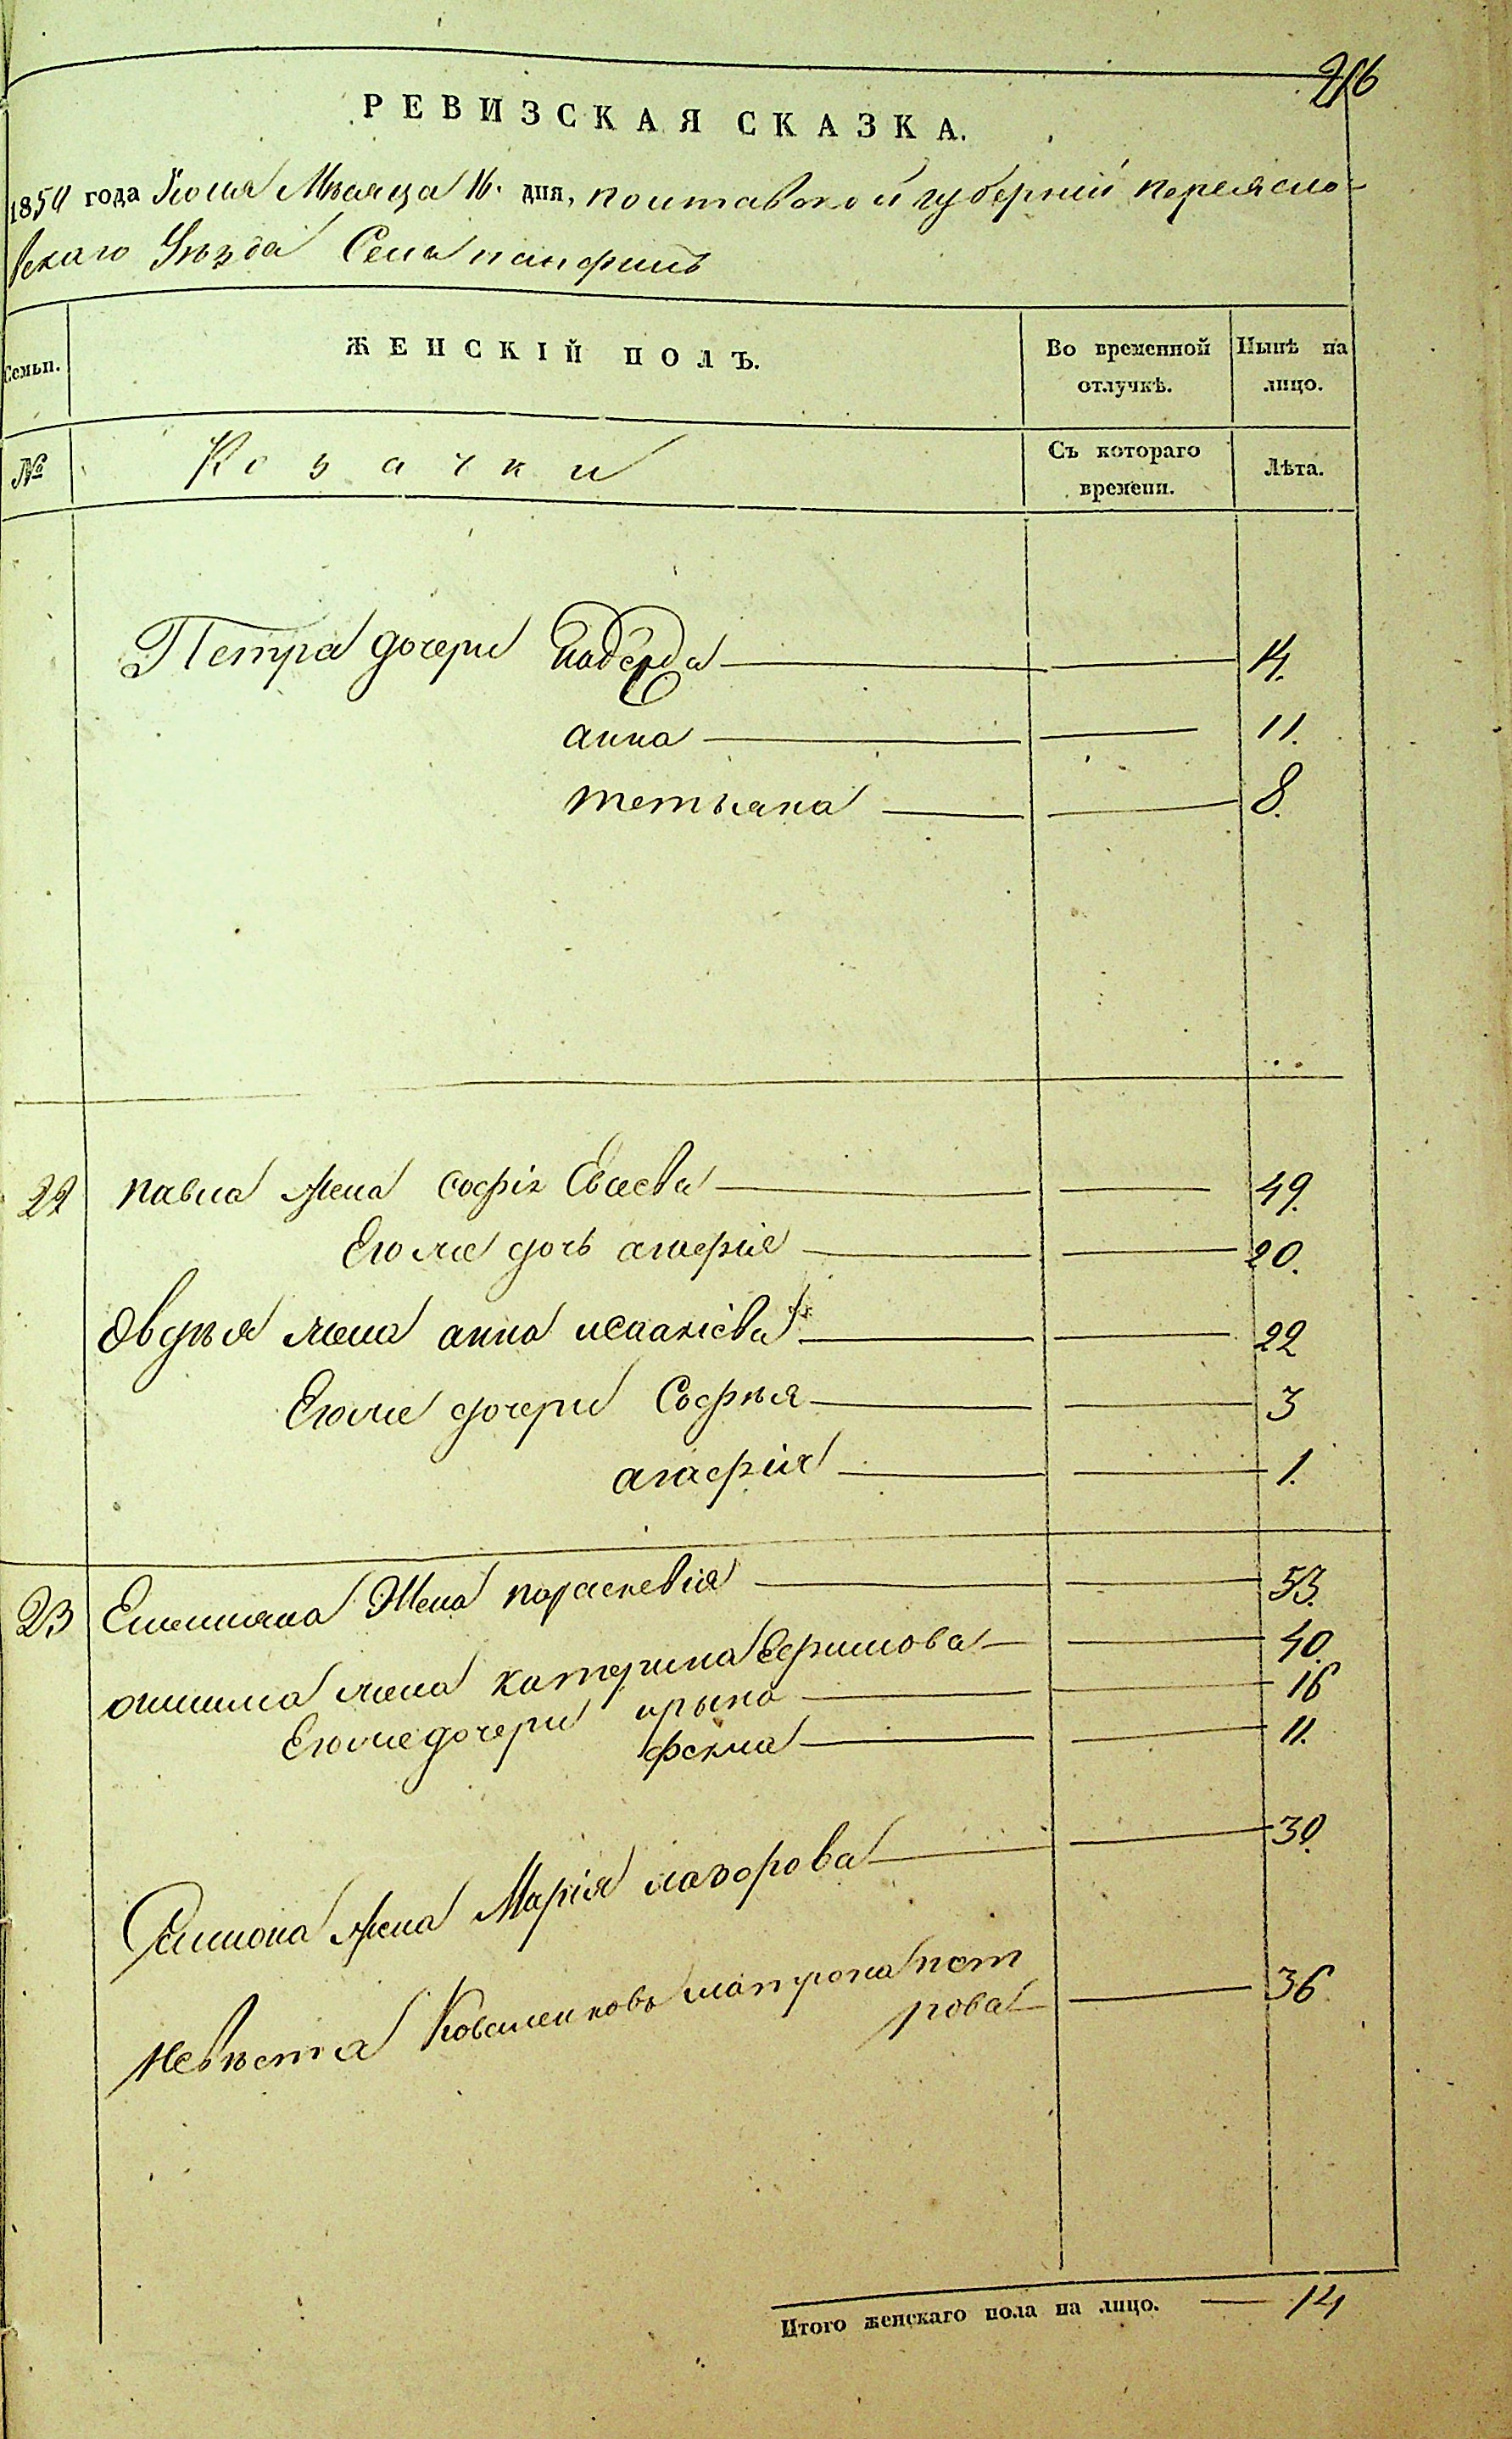 216
РЕВИЗСКАЯ СКАЗКА.
1850 года Июня Мѣсяца 16. дня, полтавской губерніи переясло-
вскаго Уѣзда Села панфилъ
Семьи. ЖЕНСКІЙ ПОЛЪ. Во временной отлучкѣ. Нынѣ на лицо.
№ Козачки Съ котораго времени. Лѣта.
Петра дочери надежда 14.
анна 11.
тетьяна 8.
22 павла жена софія Евсева 49.
Его же дочь агафия 20.
жена анна исаакіева 22
Его же дочери Софья 3
агафия 1.
23 Емелияна Жена параскевия 53.
онисима жена катерина Ефимова 40.
Его же дочери ирына 16
фекла 11.
Самсона жена Марія назорова 30.
невѣста матрона пет
рова 36
Итого женскаго пола на лицо. 14